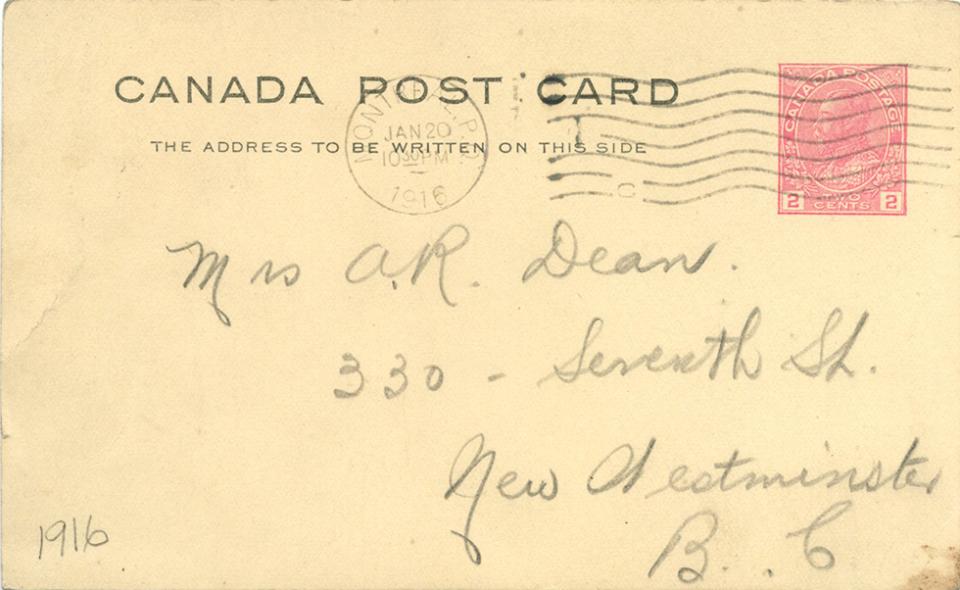 CANADA POST CARD
THE ADDRESS TO BE WRITTEN ON THIS SIDE
MONTREAL P.Q.
JAN 20
10 30 PM
1916
C
CANADA POSTAGE
2 TWO CENTS 2
Mrs A.R. Dean.
330 - Seventh St.
New Westminster
B. C
1916